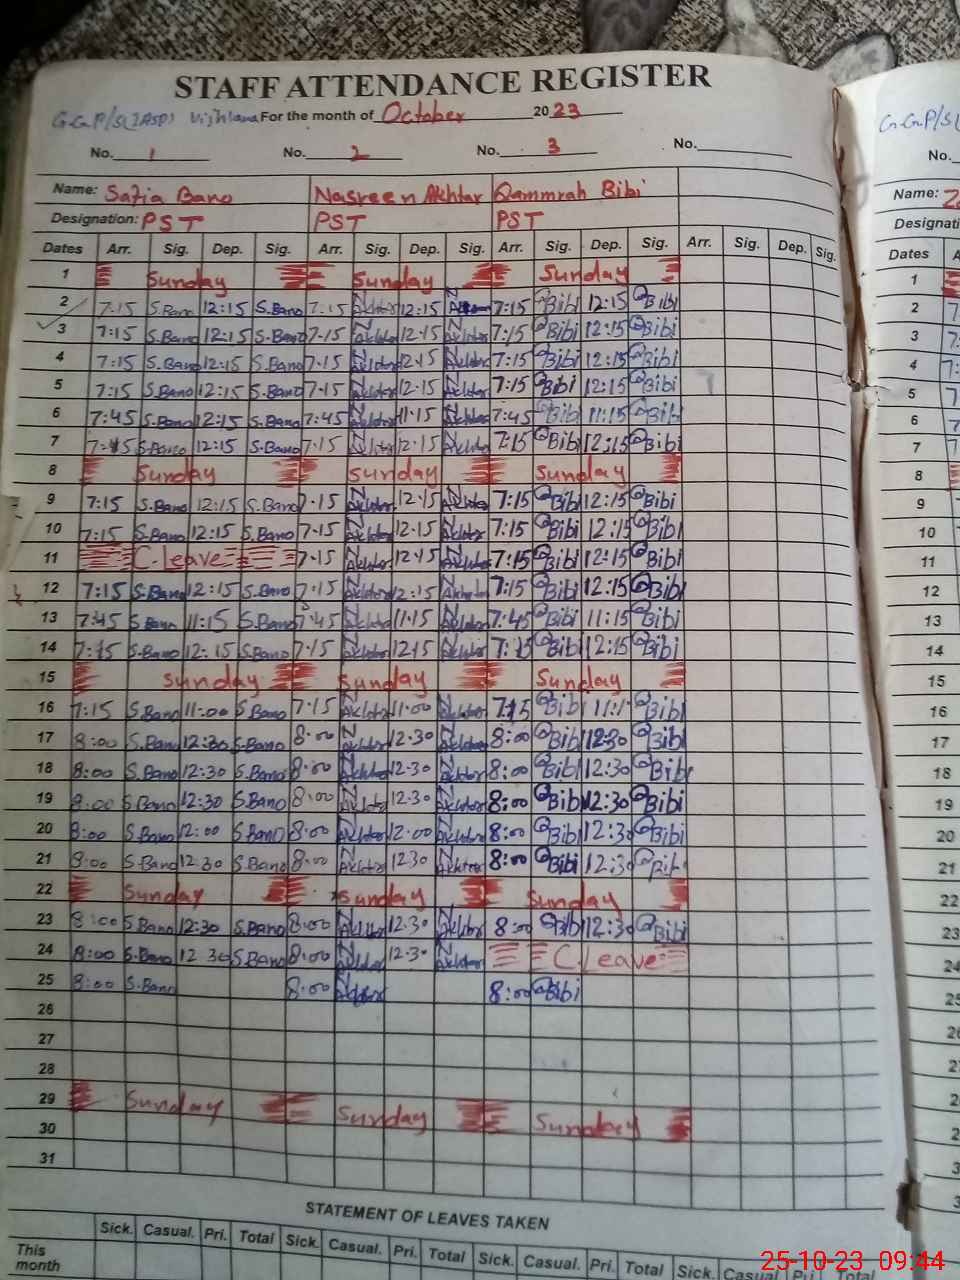 STAFF ATTENDANCE REGISTER
For the month of October 2023
No. 1 No. 2 No. 3 No.
Name: Safia Bano Nasreen Akhtar Qammrah Bibi
Designation: PST PST PST
Dates Arr. Sig. Dep. Sig. Arr. Sig. Dep. Sig. Arr. Sig. Dep. Sig. Arr. Sig. Dep. Sig.
1 Sunday Sunday Sunday
2 7:15 S.Bano 12:15 S.Bano 7:15 N Akhtar 12:15 N 7:15 Bibi 12:15 Bibi
3 7:15 S.Bano 12:15 S.Bano 7-15 N Akhtar 12:15 N Akhtar 7:15 Bibi 12:15 Bibi
4 7:15 S.Bano 12:15 S.Bano 7-15 N Akhtar 12:15 N Akhtar 7:15 Bibi 12:15 Bibi
5 7:15 S.Bano 12:15 S.Bano 7-15 N Akhtar 12-15 N Akhtar 7:15 Bibi 12:15 Bibi
6 7:45 S.Bano 12:15 S.Bano 7:45 N Akhtar 11:15 N Akhtar 7:45 Bibi 11:15 Bibi
7 7:15 S.Bano 12:15 S.Bano 7:15 N Akhtar 12-15 N Akhtar 7:15 Bibi 12:15 Bibi
8 Sunday Sunday Sunday
9 7:15 S.Bano 12:15 S.Bano 7-15 N Akhtar 12-15 N Akhtar 7:15 Bibi 12:15 Bibi
10 7:15 S.Bano 12:15 S.Bano 7-15 N Akhtar 12.15 N Akhtar 7:15 Bibi 12:15 Bibi
11 C.Leave 7-15 N Akhtar 12:15 N Akhtar 7:15 Bibi 12:15 Bibi
12 7:15 S.Bano 12:15 S.Bano 7:15 N Akhtar 12:15 N Akhtar 7:15 Bibi 12:15 Bibi
13 7:45 S Bano 11:15 S.Bano 7:45 N Akhtar 11:15 N Akhtar 7:45 Bibi 11:15 Bibi
14 7:15 S.Bano 12:15 S.Bano 7:15 N Akhtar 12:15 N Akhtar 7:15 Bibi 12:15 Bibi
15 Sunday Sunday Sunday
16 7:15 S.Bano 11:00 S.Bano 7:15 N Akhtar 11:00 N Akhtar 7:15 Bibi Bibi
17 8:00 S.Bano 12:30 S.Bano 8:00 N Akhtar 12.30 N Akhtar 8:00 Bibi 12:30 Bibi
18 8:00 S.Bano 12:30 S.Bano 8:00 N Akhtar 12.30 N Akhtar 8:00 Bibi 12:30 Bibi
19 8:00 S.Bano 12:30 S.Bano 8:00 N Akhtar 12.30 N Akhtar 8:00 Bibi 12:30 Bibi
20 8:00 S.Bano 12:00 S.Bano 8.00 N Akhtar 12.00 N Akhtar 8:00 Bibi 12:30 Bibi
21 8:00 S.Bano 12.30 S.Bano 8:00 N Akhtar 1230 N Akhtar 8:00 Bibi 12:30 Bibi
22 Sunday Sunday Sunday
23 8:00 S.Bano 12:30 S.Bano 8.00 N Akhtar 12.30 N Akhtar 8:00 Bibi 12:30 Bibi
24 8:00 S.Bano 12 30 S.Bano 8:00 N Akhtar 12.30 N Akhtar C.Leave
25 8:00 S.Bano 8.00 N Akhtar 8:00 Bibi
26
27
28
29 Sunday Sunday Sunday
30
31
STATEMENT OF LEAVES TAKEN
Sick. Casual. Pri. Total Sick. Casual. Pri. Total Sick. Casual. Pri. Total Sick. Casual. Pri.
This month
No.
Name:
Designati
Dates
1
2
3
4
5
6
7
8
9
10
11
12
13
14
15
16
17
18
19
20
21
22
23
24
25-10-23 09:44